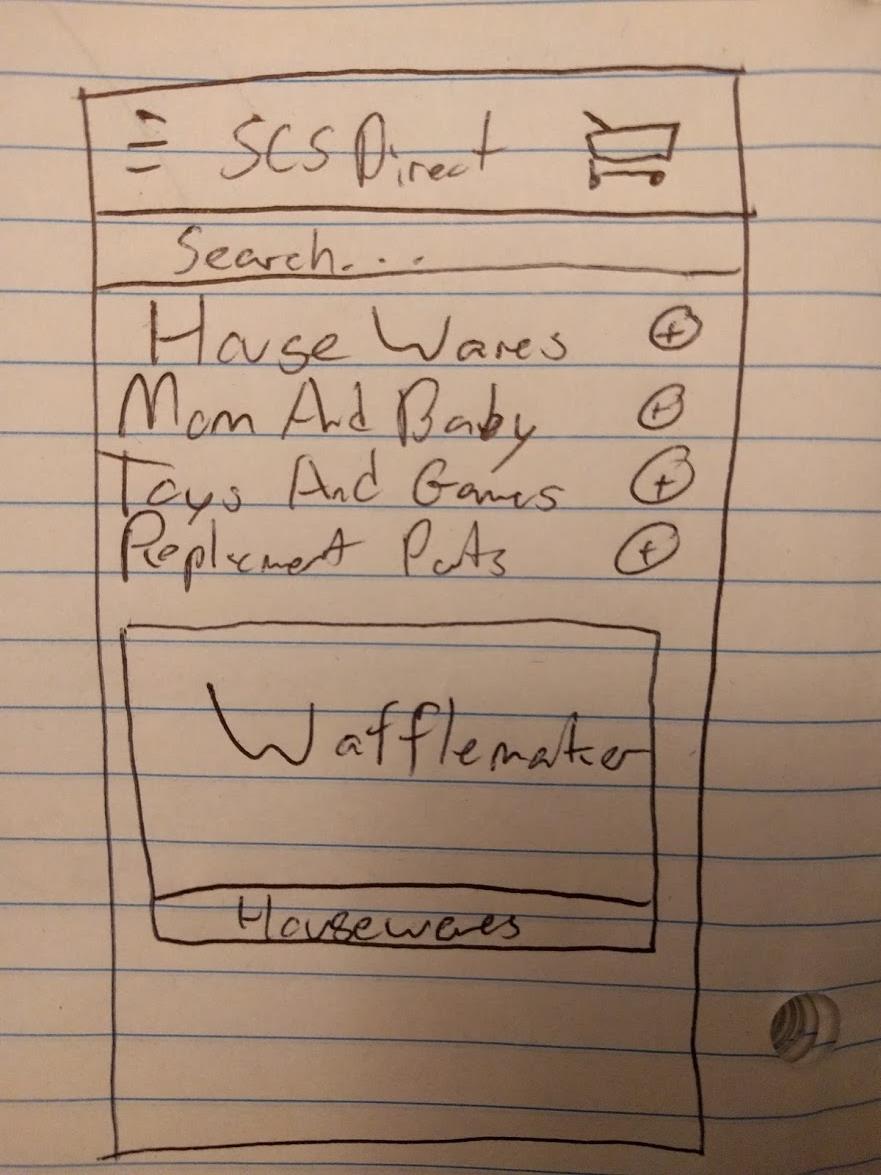 SCS Direct
Search...
House Wares
Mom And Baby
Toys And Games
Replacment Parts
Wafflemaker
Housewares